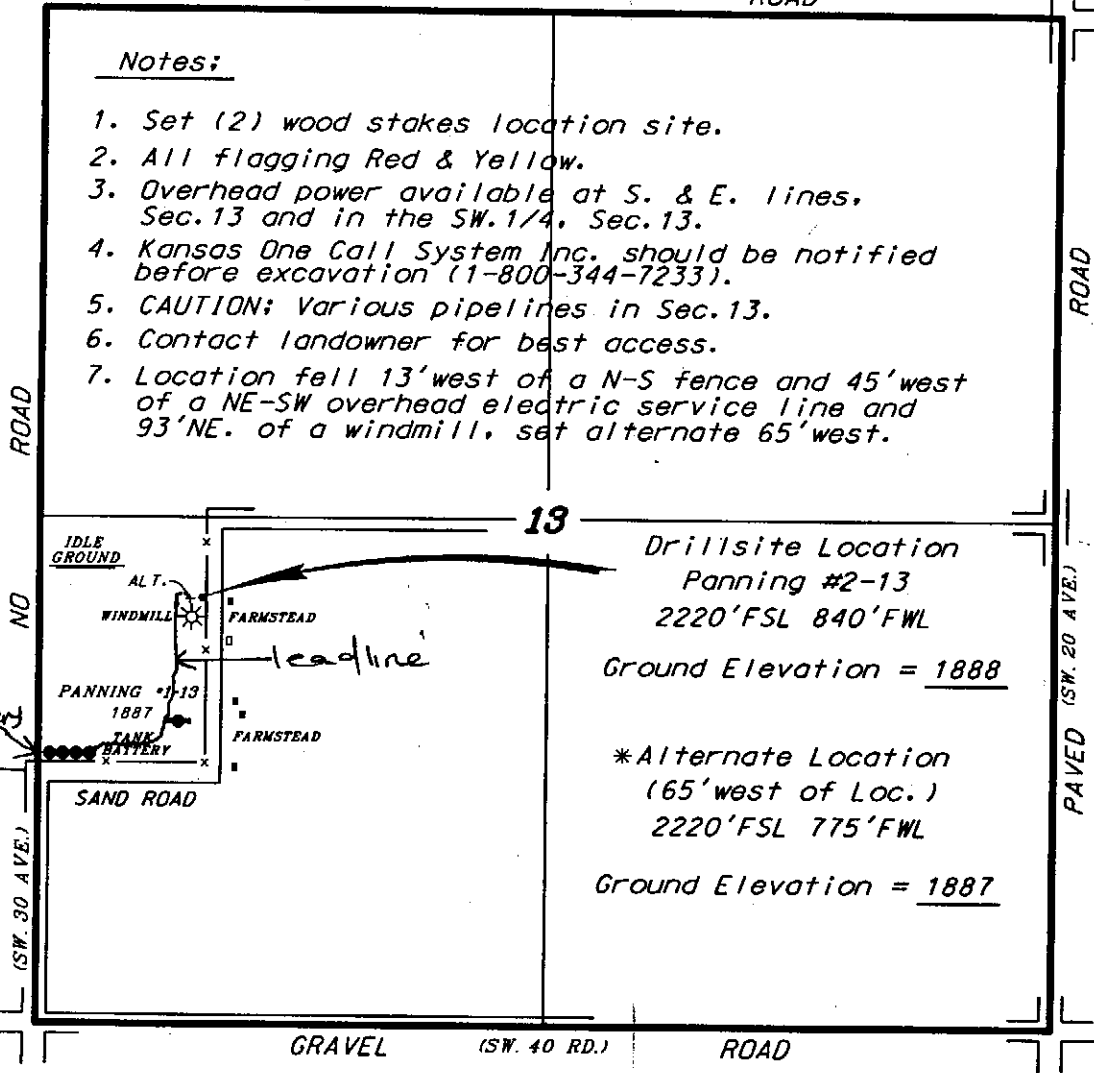 ROAD
Notes:
1. Set (2) wood stakes location site.
2. All flagging Red & Yellow.
3. Overhead power available at S. & E. lines,
Sec.13 and in the SW.1/4, Sec.13.
4. Kansas One Call System Inc. should be notified
before excavation (1-800-344-7233).
5. CAUTION: Various pipelines in Sec.13.
6. Contact landowner for best access.
7. Location fell 13'west of a N-S fence and 45'west
of a NE-SW overhead electric service line and
93'NE. of a windmill, set alternate 65'west.
NO ROAD
ROAD
13
IDLE
GROUND
ALT.
WINDMILL
FARMSTEAD
leadline
PANNING #1-13
1887
TANK
BATTERY
FARMSTEAD
SAND ROAD
Drillsite Location
Panning #2-13
2220'FSL 840'FWL
Ground Elevation = 1888
*Alternate Location
(65'west of Loc.)
2220'FSL 775'FWL
Ground Elevation = 1887
PAVED (SW. 20 AVE.)
(SW. 30 AVE.)
GRAVEL (SW. 40 RD.) ROAD